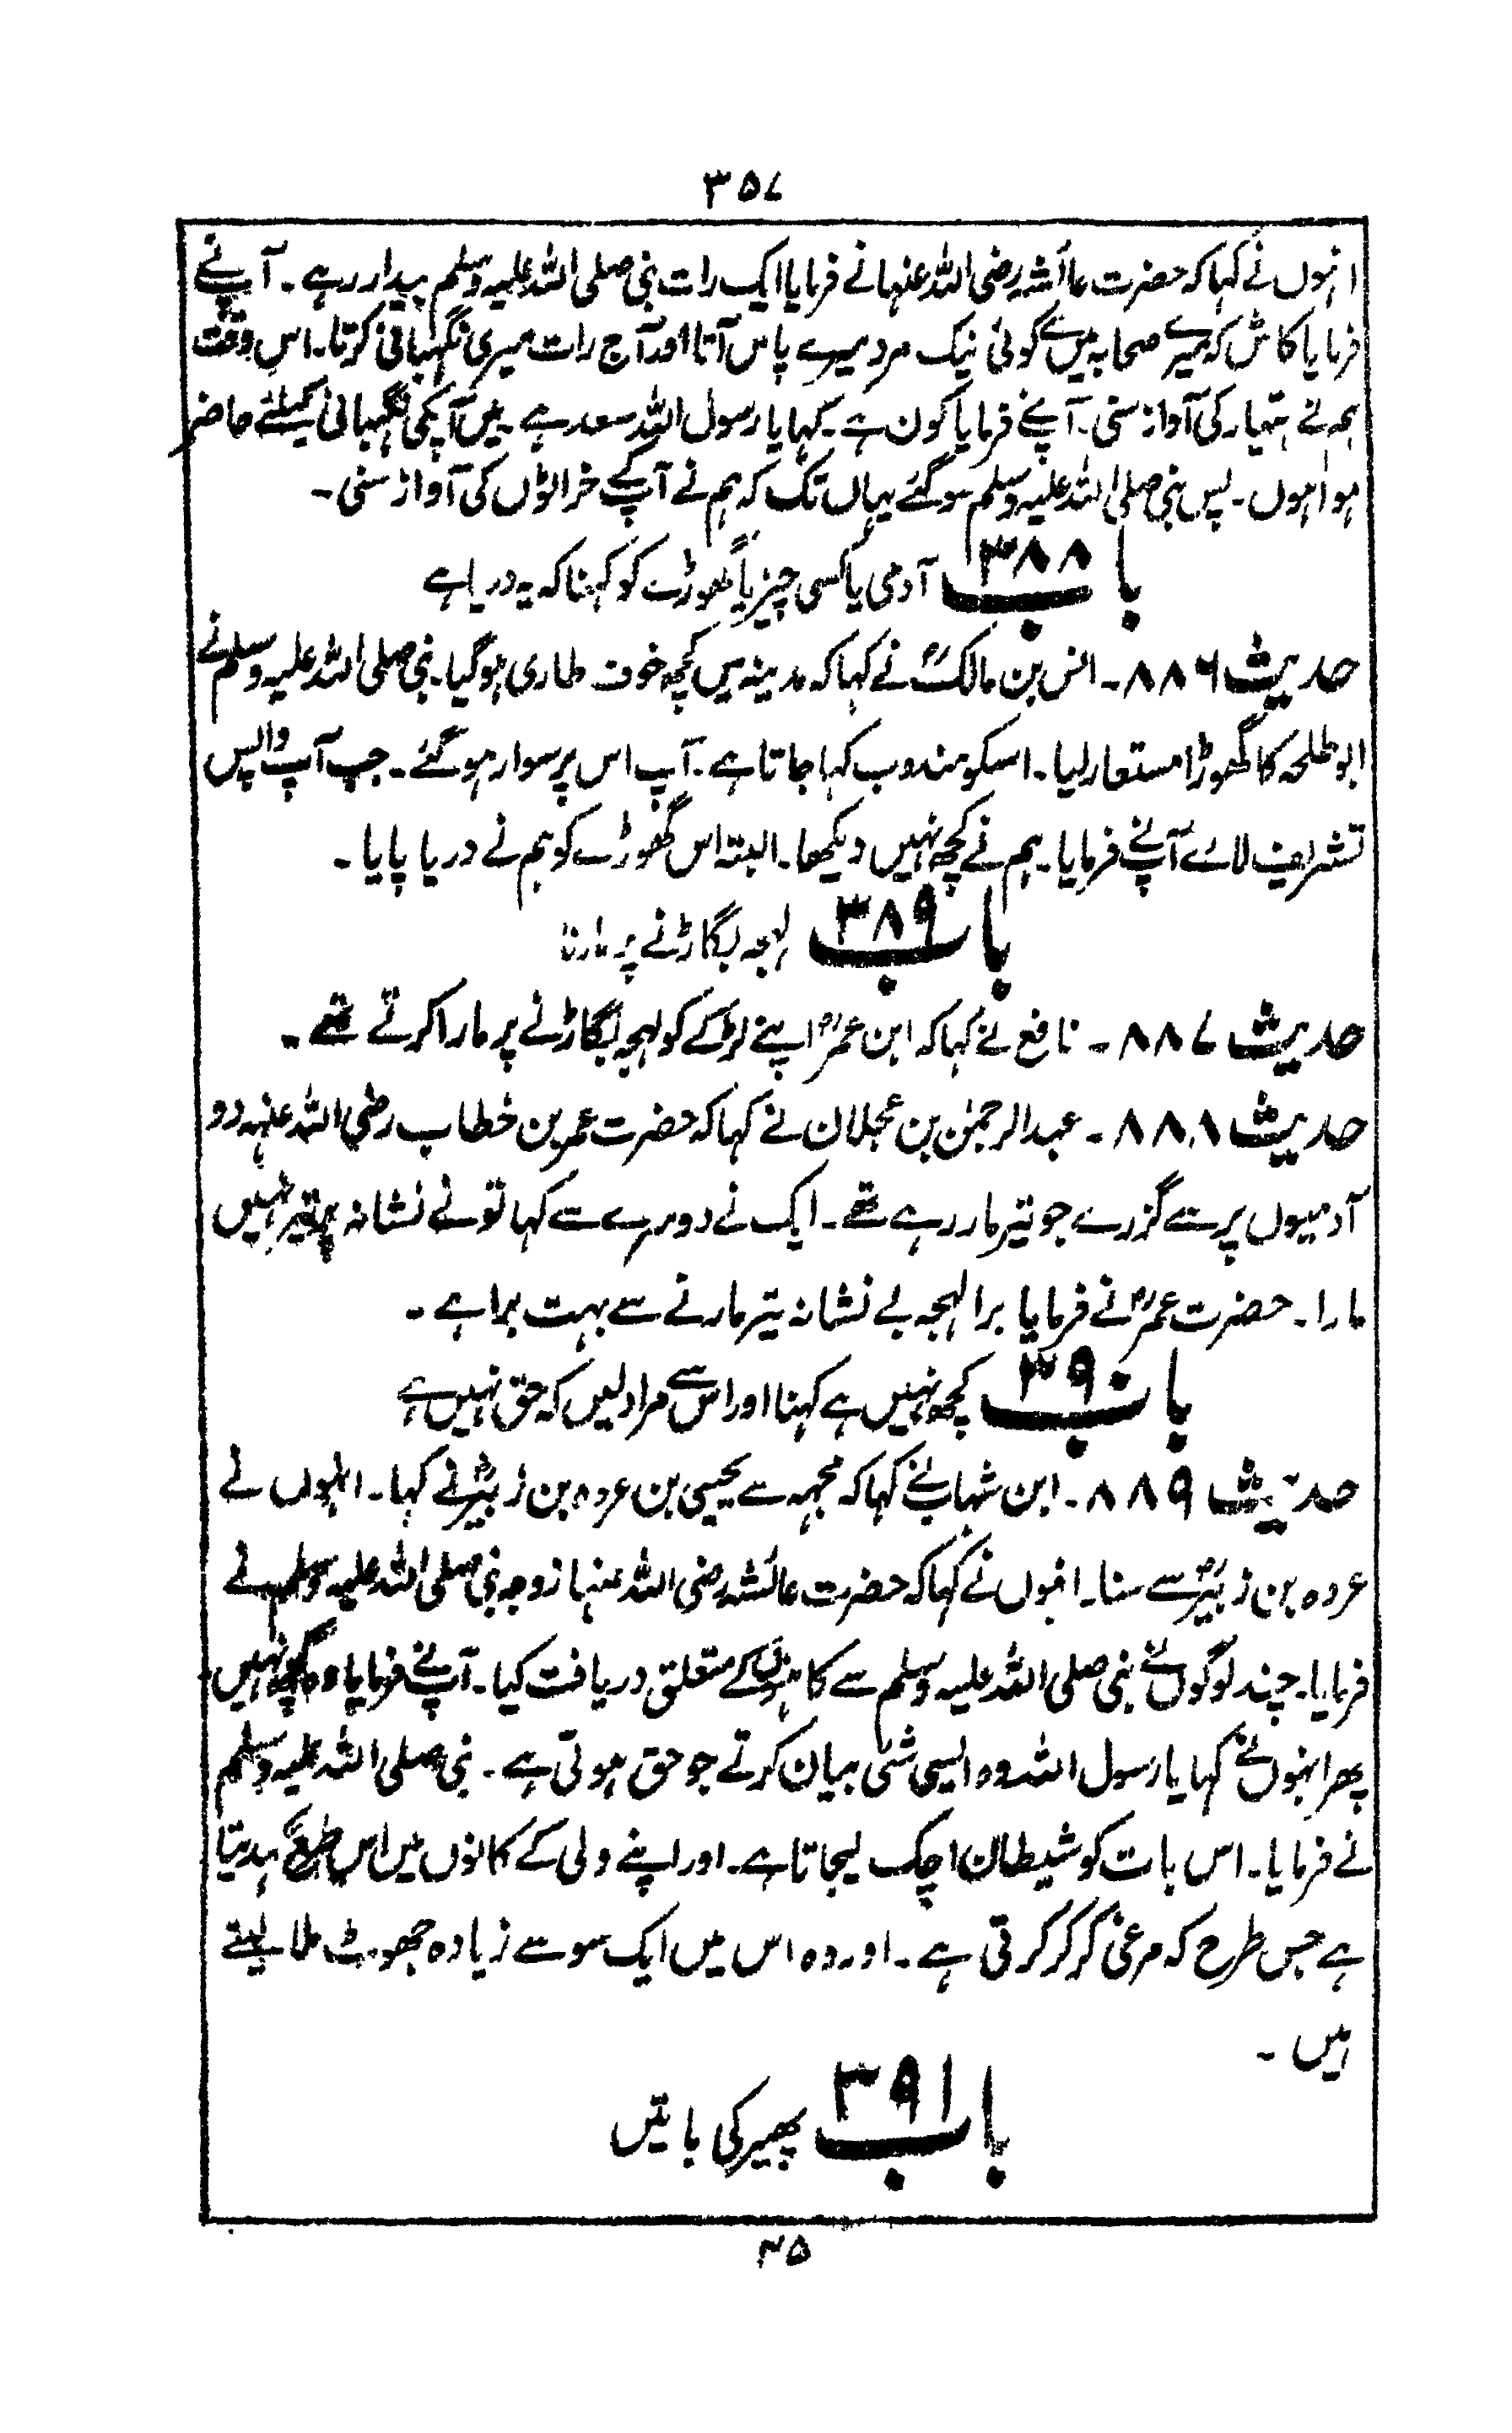 ۳۵۷
انہوں نے کہا کہ حضرت عائشہ رضی اللہ عنہا نے فرمایا ایک رات نبی صلی اللہ علیہ وسلم بیدار رہے ۔ آپنے
فرمایا کاش کہ میرے صحابہ میں سے کوئی نیک مرد میرے پاس آتا اور آج رات میری نگہبانی کرتا ۔ اس وقت
ہمنے ہتیار کی آواز سنی ۔ آپنے فرمایا کون ہے ۔ کہا یا رسول اللہ سعد ہے ۔ میں آپکی نگہبانی کیلئے حاضر
ہوا ہوں ۔ پس نبی صلی اللہ علیہ وسلم سوگئے یہاں تک کہ ہم نے آپ کے خراٹوں کی آواز سنی ۔
باب ۳۸۸ آدمی یا کسی چیز یا گھوڑے کو کہنا کہ یہ دریا ہے
حدیث ۸۸۶ ۔ انس بن مالکؓ نے کہا کہ مدینہ میں کچھ خوف طاری ہوگیا ۔ نبی صلی اللہ علیہ وسلم نے
ابو طلحہ کا گھوڑا مستعار لیا ۔ اسکو مندوب کہا جاتا ہے ۔ آپ اس پر سوار ہوگئے ۔ جب آپ واپس
تشریف لائے آپنے فرمایا ۔ ہم نے کچھ نہیں دیکھا ۔ البتہ اس گھوڑے کو ہم نے دریا پایا ۔
باب ۳۸۹ لہجہ بگاڑنے پر مارنا
حدیث ۸۸۷ ۔ نافع نے کہا کہ ابن عمرؓ اپنے لڑکے کو لہجہ بگاڑنے پر مارا کرتے تھے ۔
حدیث ۸۸۸ ۔ عبدالرحمٰن بن عجلان نے کہا کہ حضرت عمر بن خطاب رضی اللہ عنہ دو
آدمیوں پر سے گزرے جو تیر مار رہے تھے ۔ ایک نے دوسرے سے کہا تو نے نشانہ پر تیر نہیں
مارا ۔ حضرت عمرؓ نے فرمایا برا لہجہ بے نشانہ تیر مارنے سے بہت برا ہے ۔
باب ۳۹۰ کچھ نہیں ہے کہنا اور اس سے مراد لیں کہ حق نہیں ہے
حدیث ۸۸۹ ۔ ابن شہاب نے کہا کہ مجہہ سے یحیی بن عروہ بن زبیرؓ نے کہا ۔ انہوں نے
عروہ بن زبیرؓ سے سنا ۔ انہوں نے کہا کہ حضرت عائشہ رضی اللہ عنہا زوجہ نبی صلی اللہ علیہ وسلم نے
فرمایا ۔ چند لوگوں نے نبی صلی اللہ علیہ وسلم سے کاہنوں کے متعلق دریافت کیا ۔ آپنے فرمایا وہ کچھ نہیں
پھر انہوں نے کہا یا رسول اللہ وہ ایسی شئی بیان کرتے جو حق ہوتی ہے ۔ نبی صلی اللہ علیہ وسلم
نے فرمایا ۔ اس بات کو شیطان اچک لیجاتا ہے ۔ اور اپنے ولی کے کانوں میں اس طرح
ہے جس طرح کہ مرغی کرکر کرتی ہے ۔ اور وہ اس میں ایک سو سے زیادہ جھوٹ ملا لیتے
ہیں ۔
باب ۳۹۱ پھیر کی باتیں
۴۵